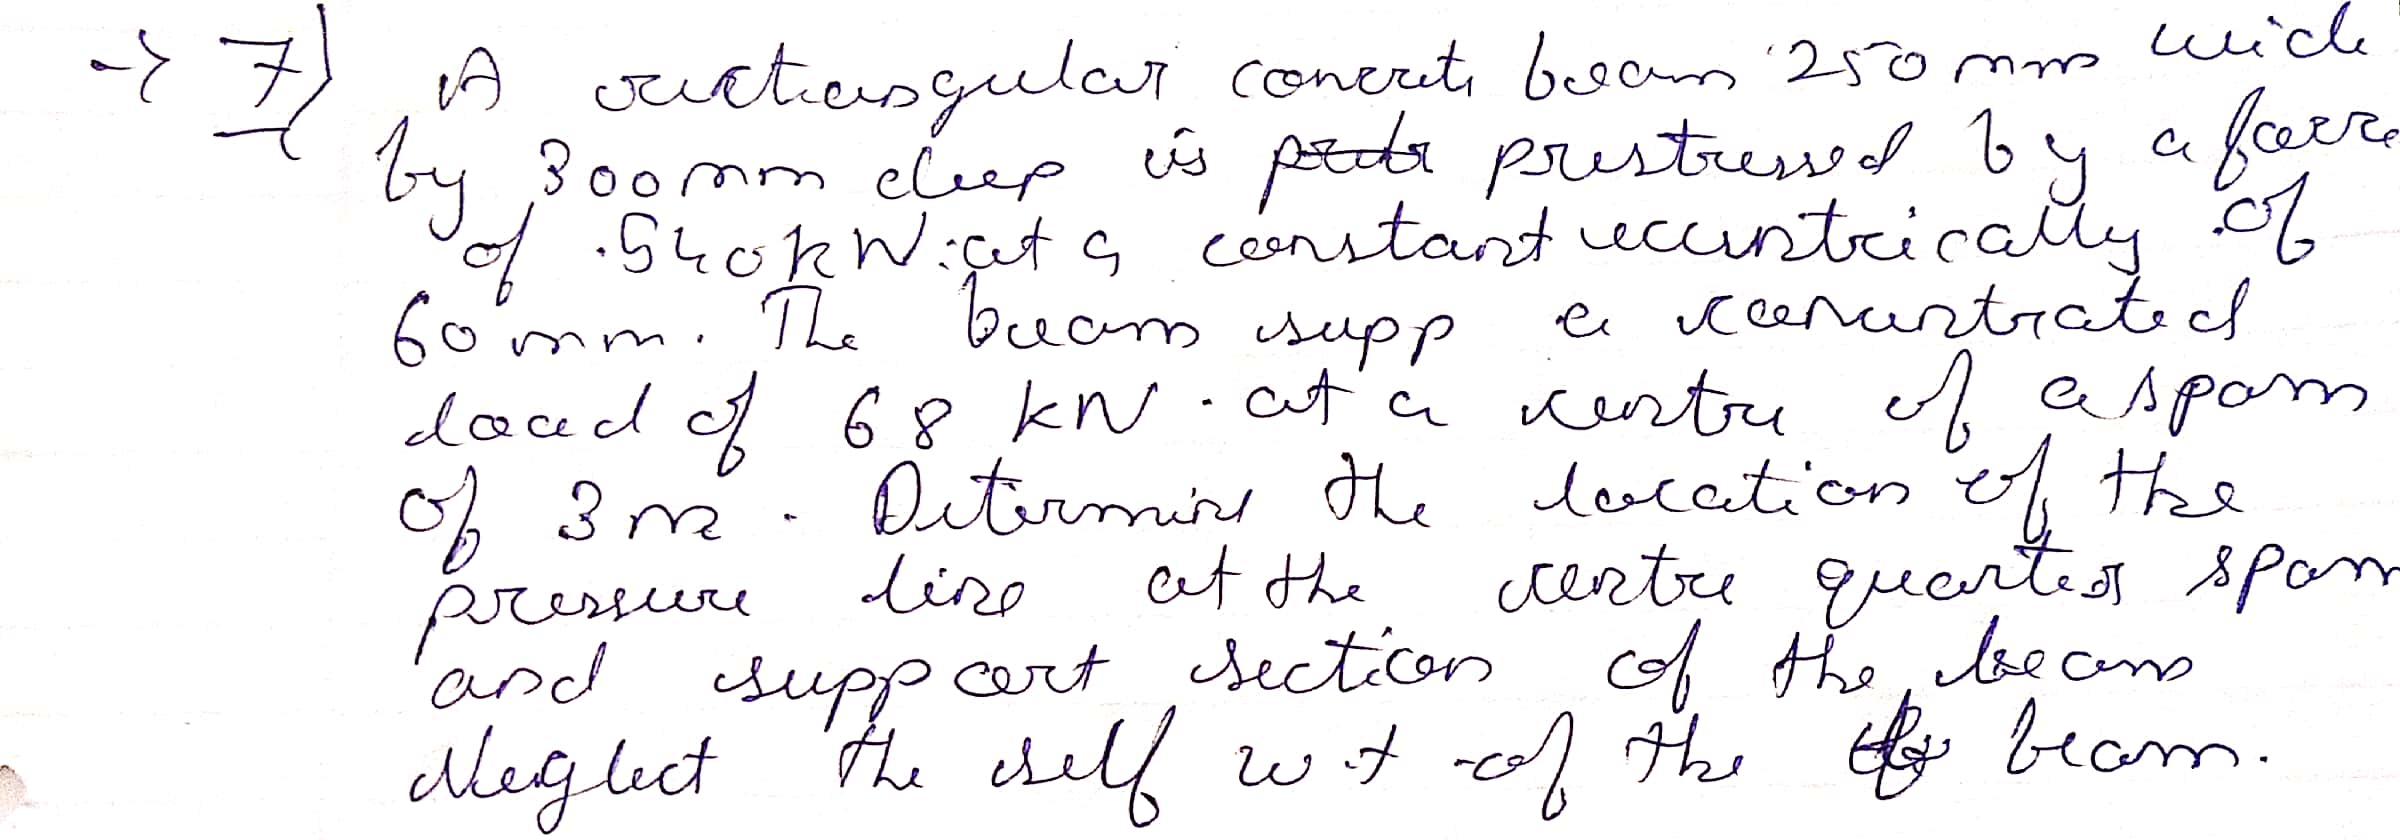 → 7) A rectangular concrete beam 250 mm wide
by 300 mm deep is prestressed by a force
of 540kN at a constant eccentrically of
60 mm. The beam supp a concentrated
load of 68 kN. at a centre of a span
of 3 m. Determine the location of the
pressure line at the centre quarter span
and support section of the beam
Neglect the self wt of the beam.